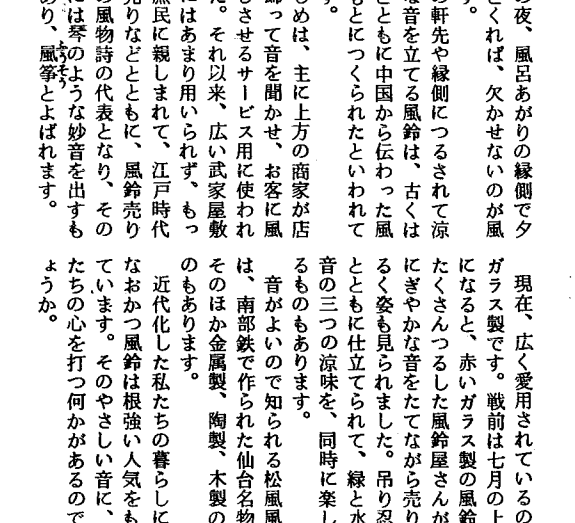 の夜、風呂あがりの縁側で夕
とくれば、欠かせないのが風
す。
の軒先や縁側につるされて涼
な音を立てる風鈴は、古くは
とともに中国から伝わった風
もとにつくられたといわれて
す。
じめは、主に上方の商家が店
飾って音を聞かせ、お客に風
じさせるサービス用に使われ
た。それ以来、広い武家屋敷
にはあまり用いられず、もっ
庶民に親しまれて、江戸時代
売りなどとともに、風鈴売り
の風物詩の代表となり、その
には琴のような妙音を出すも
あり、風箏とよばれます。
ふうそう
現在、広く愛用されているの
ガラス製です。戦前は七月の上
になると、赤いガラス製の風鈴
たくさんつるした風鈴屋さんが
にぎやかな音をたてながら売り
るく姿も見られました。吊り忍
とともに仕立てられて、緑と水
音の三つの涼味を、同時に楽し
るものもあります。
音がよいので知られる松風風
は、南部鉄で作られた仙台名物
そのほか金属製、陶製、木製の
のもあります。
近代化した私たちの暮らしに
なおかつ風鈴は根強い人気をも
ています。そのやさしい音に、
たちの心を打つ何かがあるので
ょうか。